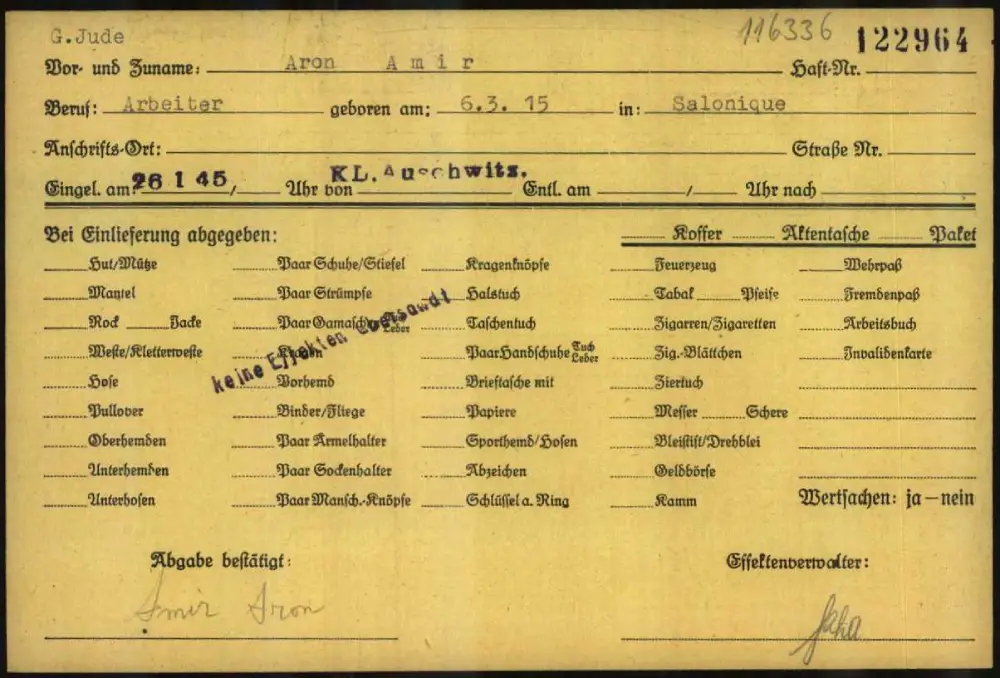 G.Jude 116336 122964
Vor- und Zuname: Aron Amir Haft-Nr.
Beruf: Arbeiter geboren am: 6.3. 15 in: Salonique
Anschrifts-Ort: Straße Nr.
Eingel. am 26 1 45 / Uhr von KL. Auschwitz. Entl. am / Uhr nach
Bei Einlieferung abgegeben: Koffer Aktentasche Paket
Hut/Mütze Paar Schuhe/Stiefel Kragenknöpfe Feuerzeug Wehrpaß
Mantel Paar Strümpfe Halstuch Tabak Pfeife Fremdenpaß
Rock Jacke Paar Gamasch. Leder Taschentuch Zigarren/Zigaretten Arbeitsbuch
Weste/Kletterweste Kragen Paar Handschuhe Tuch Leder Zig.-Blättchen Invalidenkarte
keine Effekten übersandt
Hose Vorhemd Brieftasche mit Ziertuch
Pullover Binder/Fliege Papiere Messer Schere
Oberhemden Paar Ärmelhalter Sporthemd/Hosen Bleistift/Drehblei
Unterhemden Paar Sockenhalter Abzeichen Geldbörse
Unterhosen Paar Mansch.-Knöpfe Schlüssel a. Ring Kamm Wertsachen: ja – nein
Abgabe bestätigt: Effektenverwalter:
Amir Aron